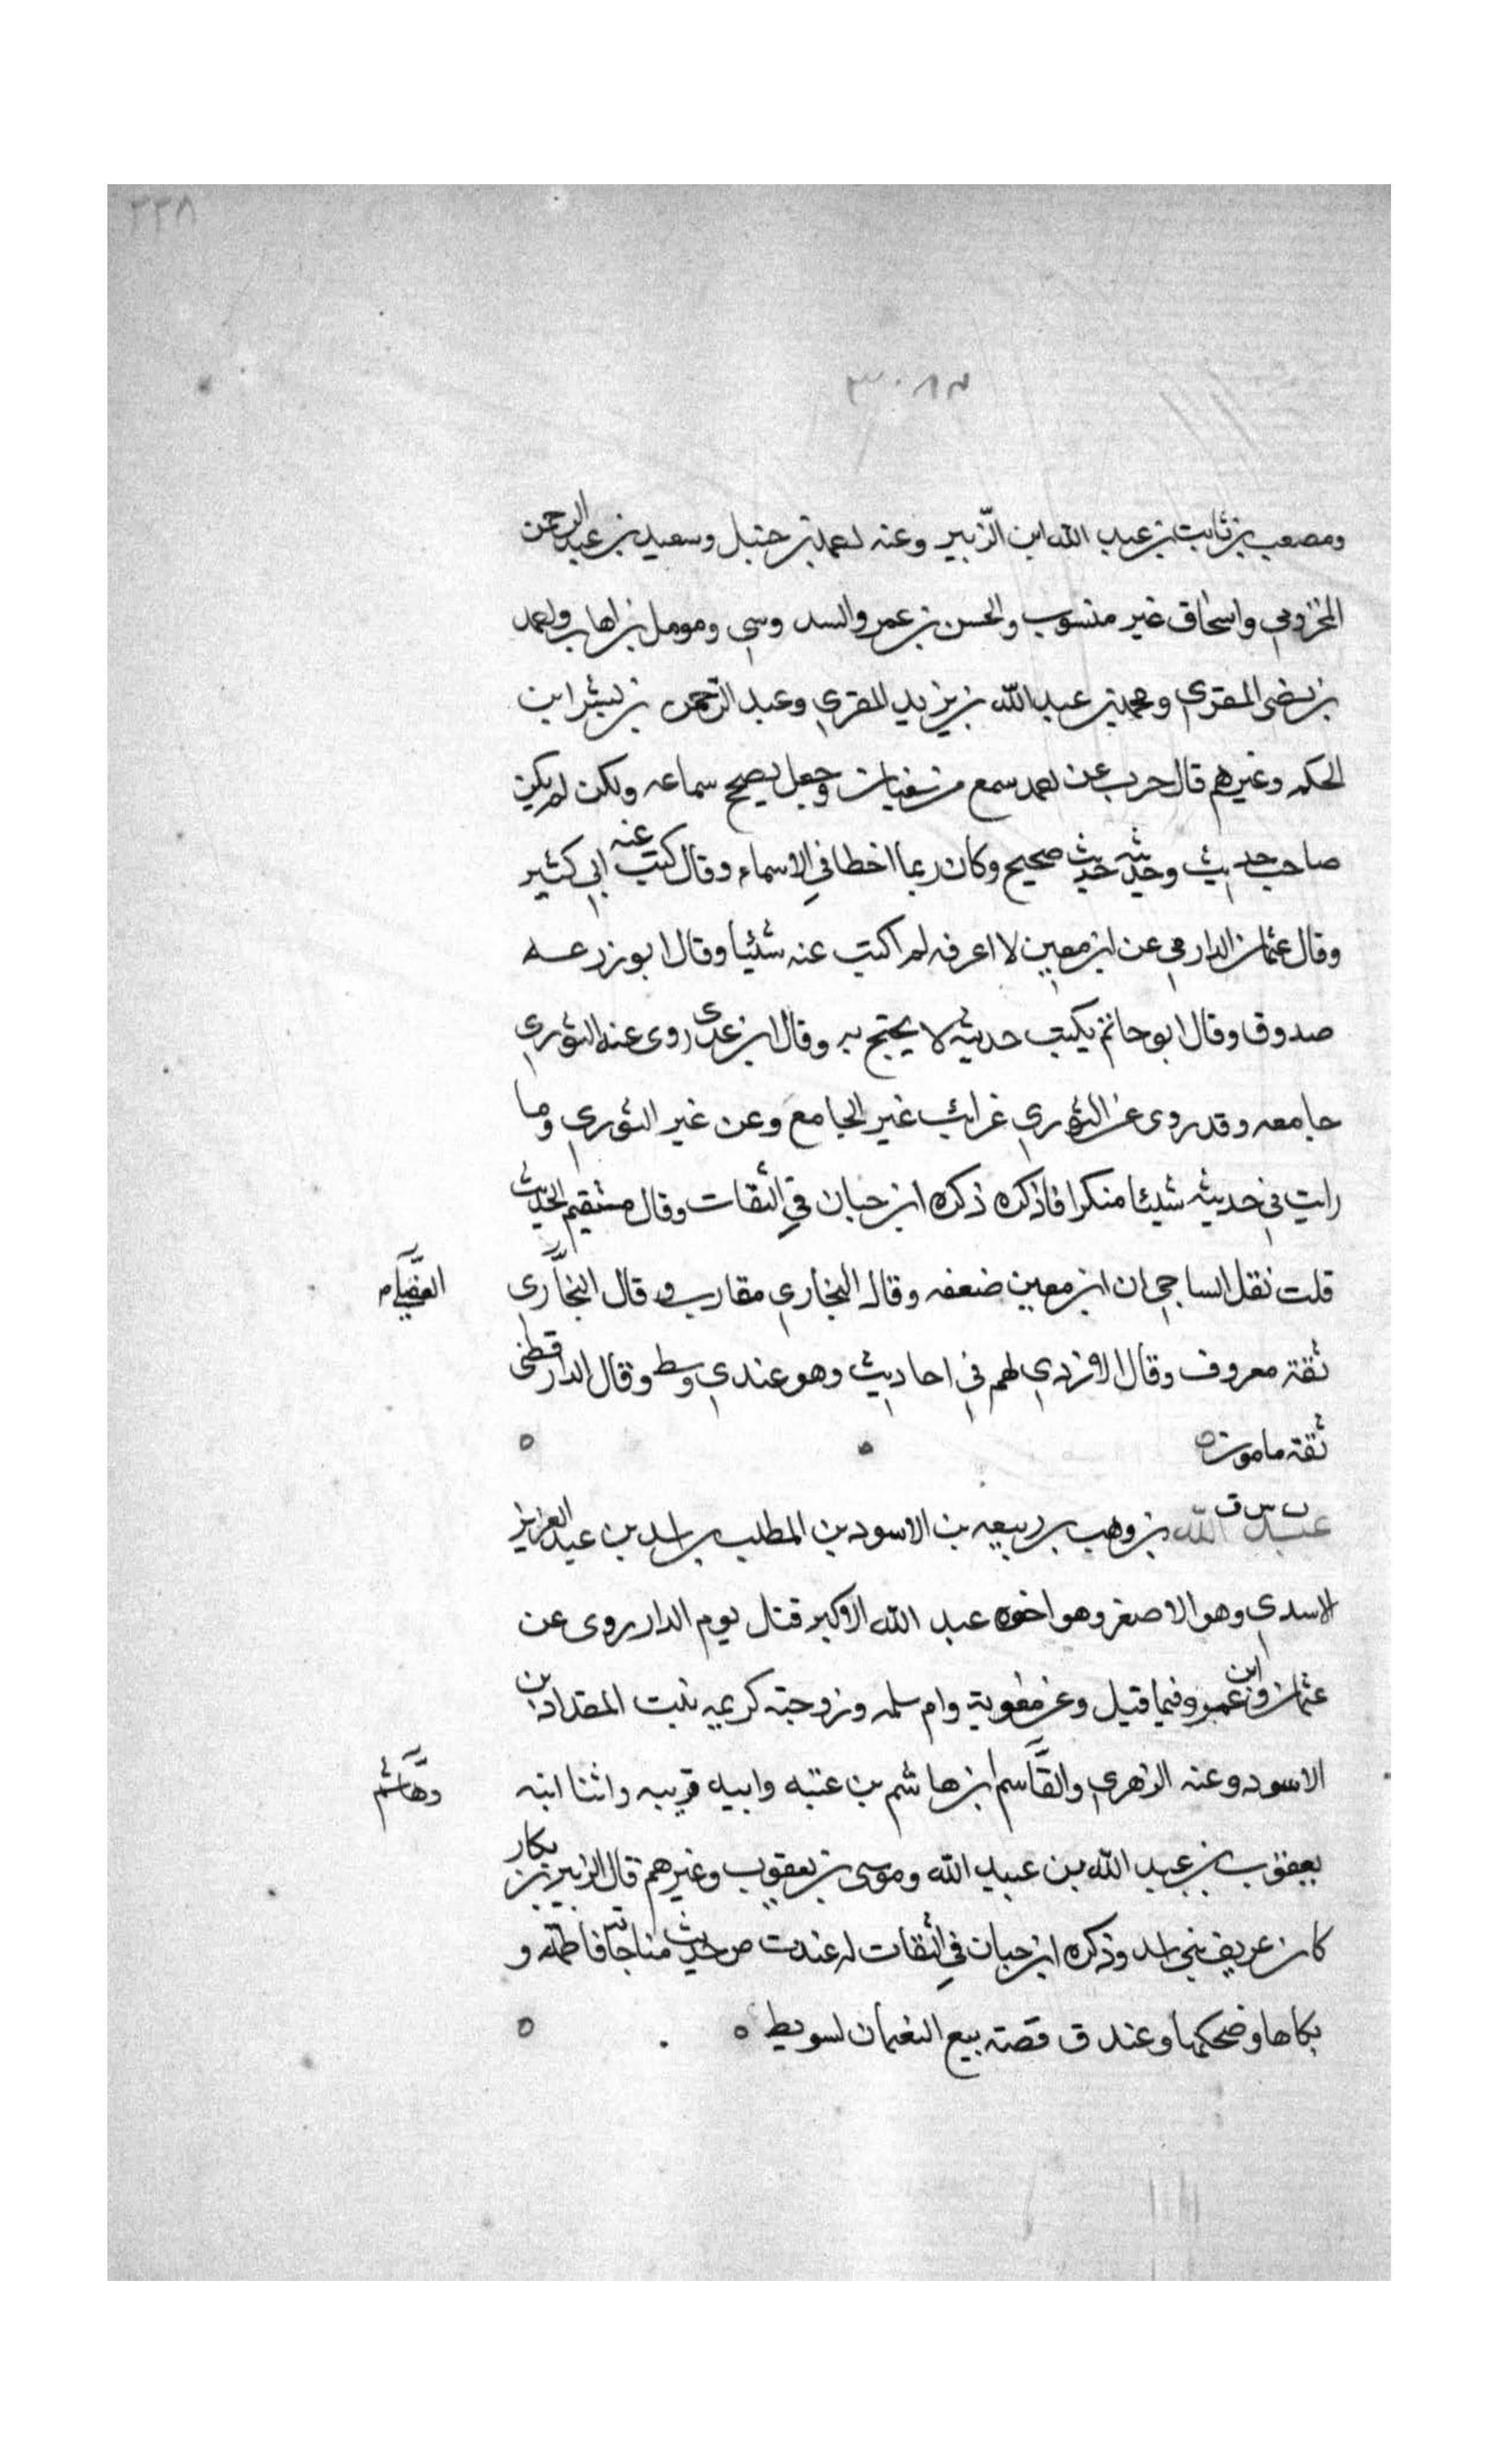 ٢٢٨
ومصعب بن ثابت بن عبد الله ابن الزّبير وعنه احمد بن حنبل وسعيد بن عبد الرحمن
المخزومي واسحاق غير منسوب والحسن بن عمر والسد وسي ومومل بن اهاب واحمد
بن نصر المقري ومحمد بن عبد الله بن يزيد المقري وعبد الرحمن بن بشر ابن
الحكم وغيرهم قال حرب عن احمد سمع من سفيان وجعل يصحح سماعه ولكن لم يكن
صاحب حديث وحديثه حديث صحيح وكان ربما اخطا في الاسماء وقال كتب عنه ابي كثير
وقال عثمان الدارمي عن ابن معين لا اعرفه لم اكتب عنه شيئا وقال ابو زرعه
صدوق وقال ابو حاتم يكتب حديثه لا يحتج به وقال ابن عدي روى عنه الثوري
جامعه وقد روى عن الثوري غرائب غير الجامع وعن غير الثوري وما
رايت في حديثه شيئا منكرا فاذكره ذكره ابن حبان في الثقات وقال مستقيم الحديث
قلت نقل الساجي ان ابن معين ضعفه وقال البخاري مقارب وقال البخاري
العقيلي
ثقة معروف وقال الازدي لهم في احاديث وهو عندي وسط وقال الدارقطني
ثقة مامون
ت س ق
عبد الله بن وهب بن ربيعه بن الاسود بن المطلب بن اسد بن عبد العزيز
الاسدي وهو الاصغر وهو اخوه عبد الله الاكبر قتل يوم الدار روى عن
عثمان وابن عمر وفيما قيل وعن معوية وام سلمه وزوجته كريمه بنت المقداد بن
الاسود وعنه الزهري والقاسم ابن هاشم بن عتبه وابيه قريبه واثنا ابنه
وهاشم
يعقوب بن عبد الله بن عبد الله وموسى بن يعقوب وغيرهم قال الزبير بن بكار
كان عريف بني اسد وذكره ابن حبان في الثقات له عند ت ص حديث مناجاته فاطمة و
بكاها وضحكها وعند ق قصة بيع النعمان لسويط